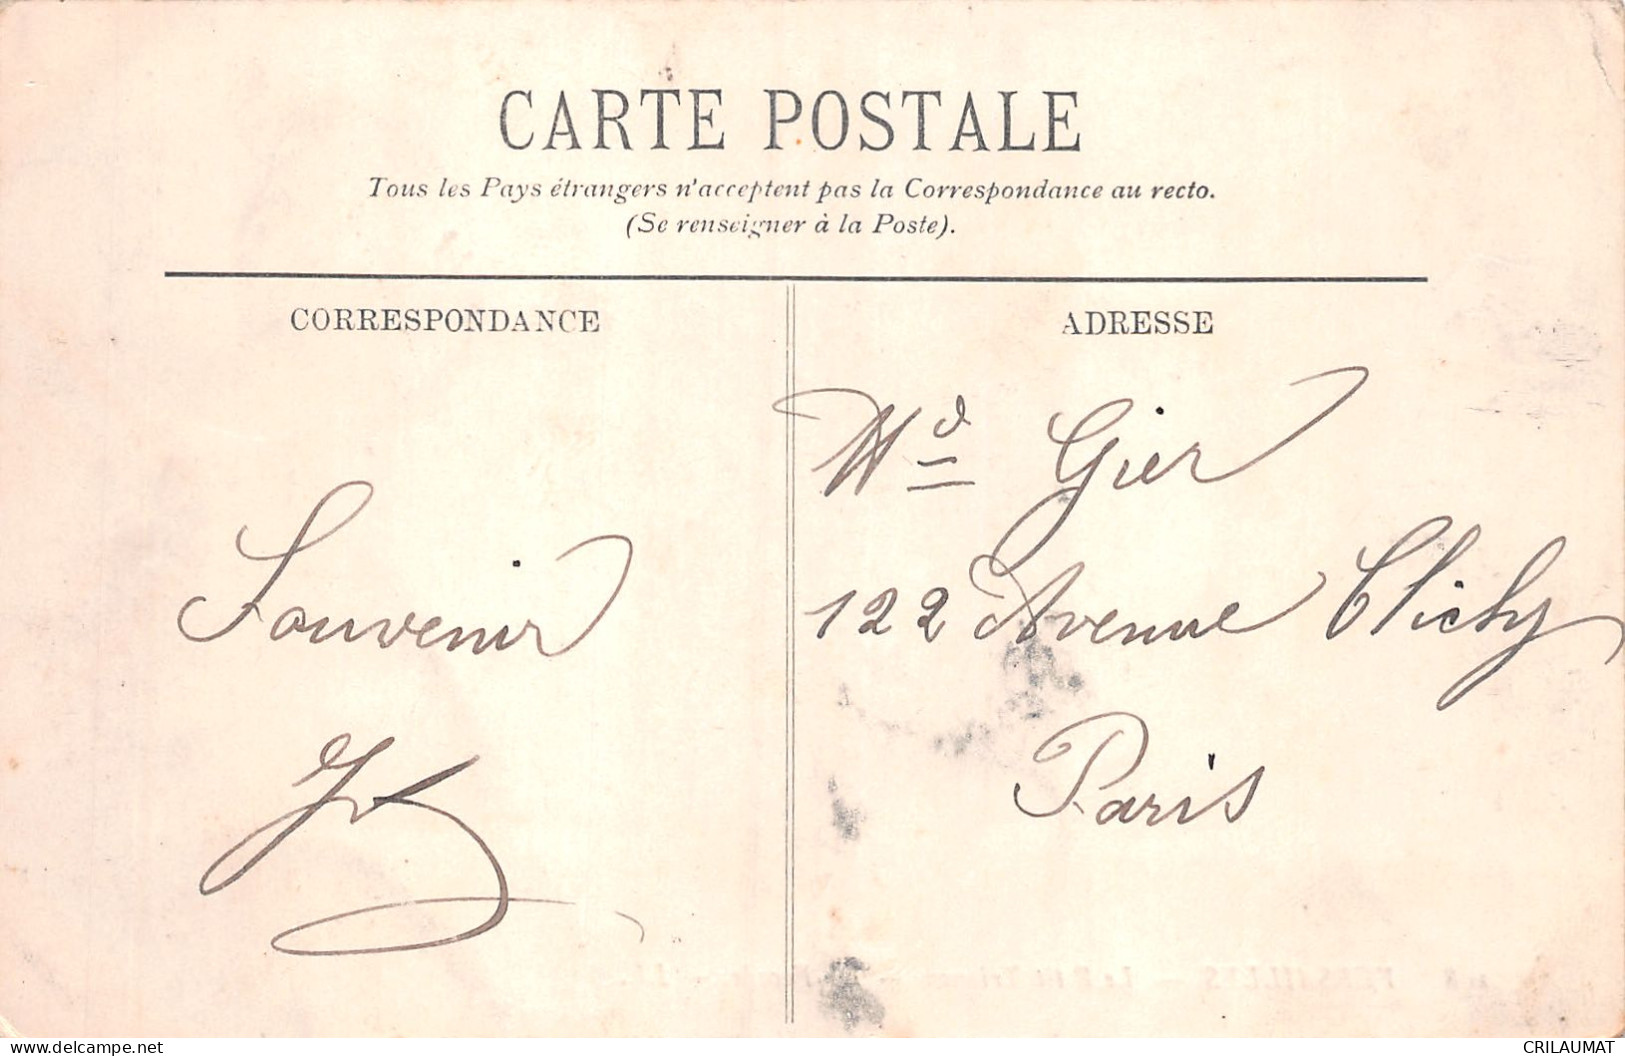 CARTE POSTALE
Tous les Pays étrangers n'acceptent pas la Correspondance au recto.
(Se renseigner à la Poste).
CORRESPONDANCE
ADRESSE
Souvenir
Md Gier
122 Avenue Clichy
Paris
VERSAILLES
www.delcampe.net
CRILAUMAT